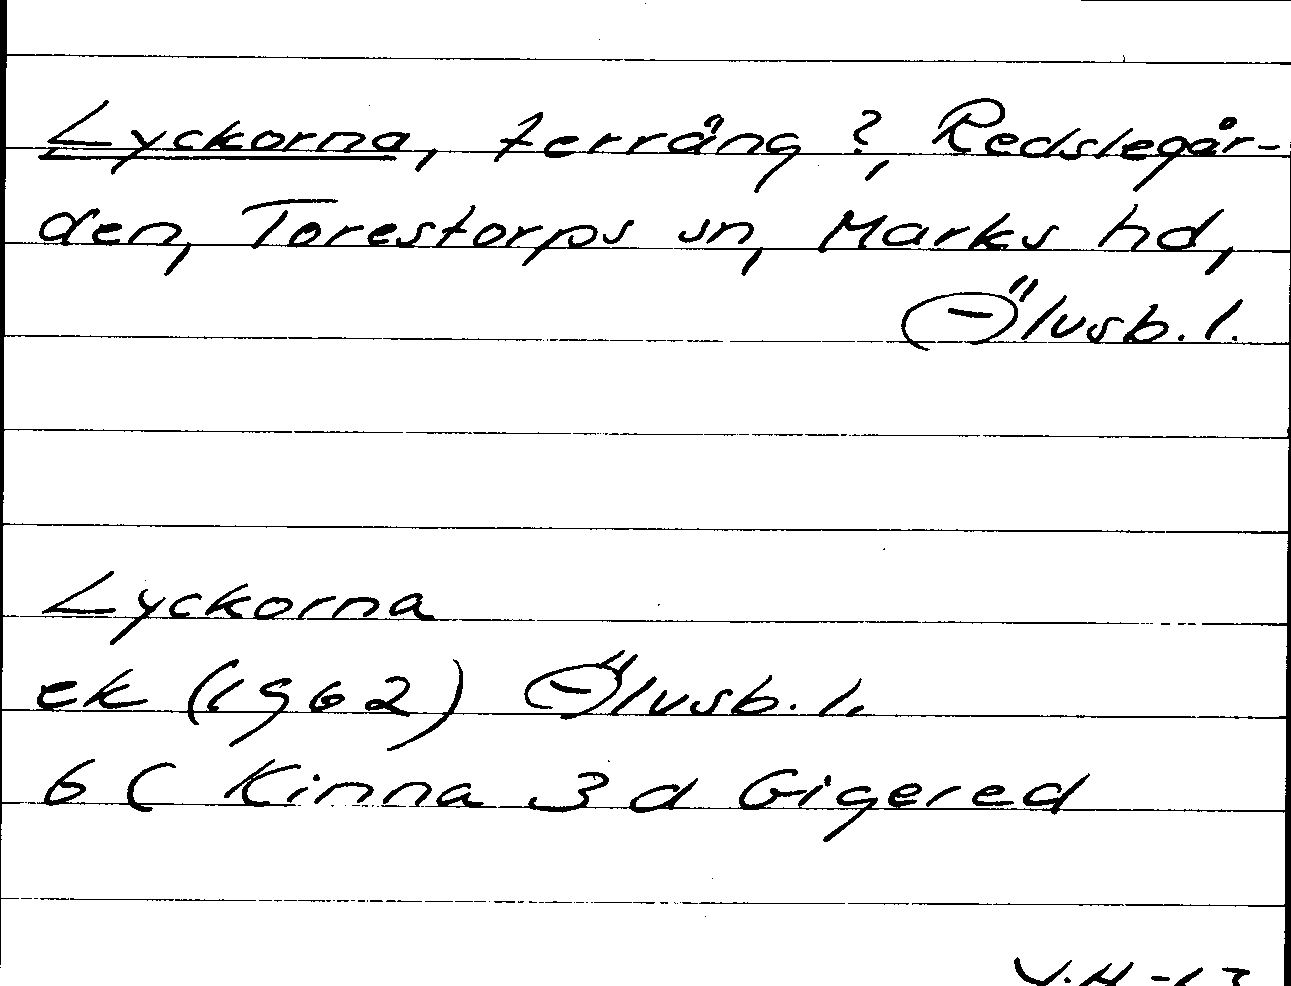 Lyckorna, terräng ?, Redslegår-
den, Torestorps sn, Marks hd,
Älvsb. l.
Lyckorna
ek (1962) Älvsb. l.
6 C Kinna 3 d Gigered